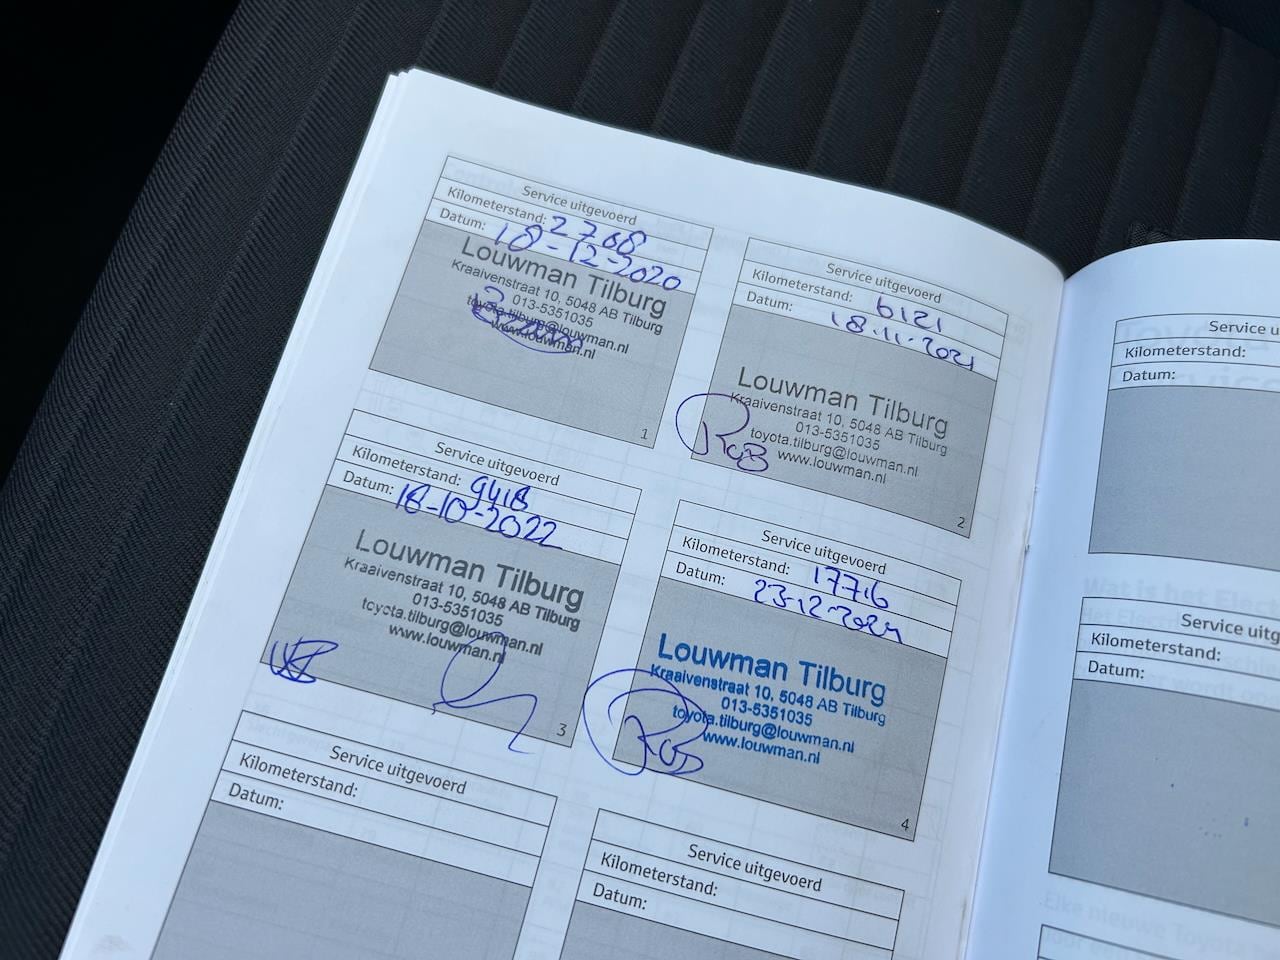 Service uitgevoerd
Kilometerstand: 2768
Datum: 18-12-2020
Louwman Tilburg
Kraaivenstraat 10, 5048 AB Tilburg
013-5351035
toyota.tilburg@louwman.nl
www.louwman.nl
1
Service uitgevoerd
Kilometerstand: 6121
Datum: 18.11.2021
Louwman Tilburg
Kraaivenstraat 10, 5048 AB Tilburg
013-5351035
toyota.tilburg@louwman.nl
www.louwman.nl
Rob
2
Service uitgevoerd
Kilometerstand: 9418
Datum: 18-10-2022
Louwman Tilburg
Kraaivenstraat 10, 5048 AB Tilburg
013-5351035
toyota.tilburg@louwman.nl
www.louwman.nl
3
Service uitgevoerd
Kilometerstand: 17716
Datum: 23-12-2024
Louwman Tilburg
Kraaivenstraat 10, 5048 AB Tilburg
013-5351035
toyota.tilburg@louwman.nl
www.louwman.nl
Rob
4
Service uitgevoerd
Kilometerstand:
Datum:
Service uitgevoerd
Kilometerstand:
Datum:
Service u
Kilometerstand:
Datum:
Service uitg
Kilometerstand:
Datum: